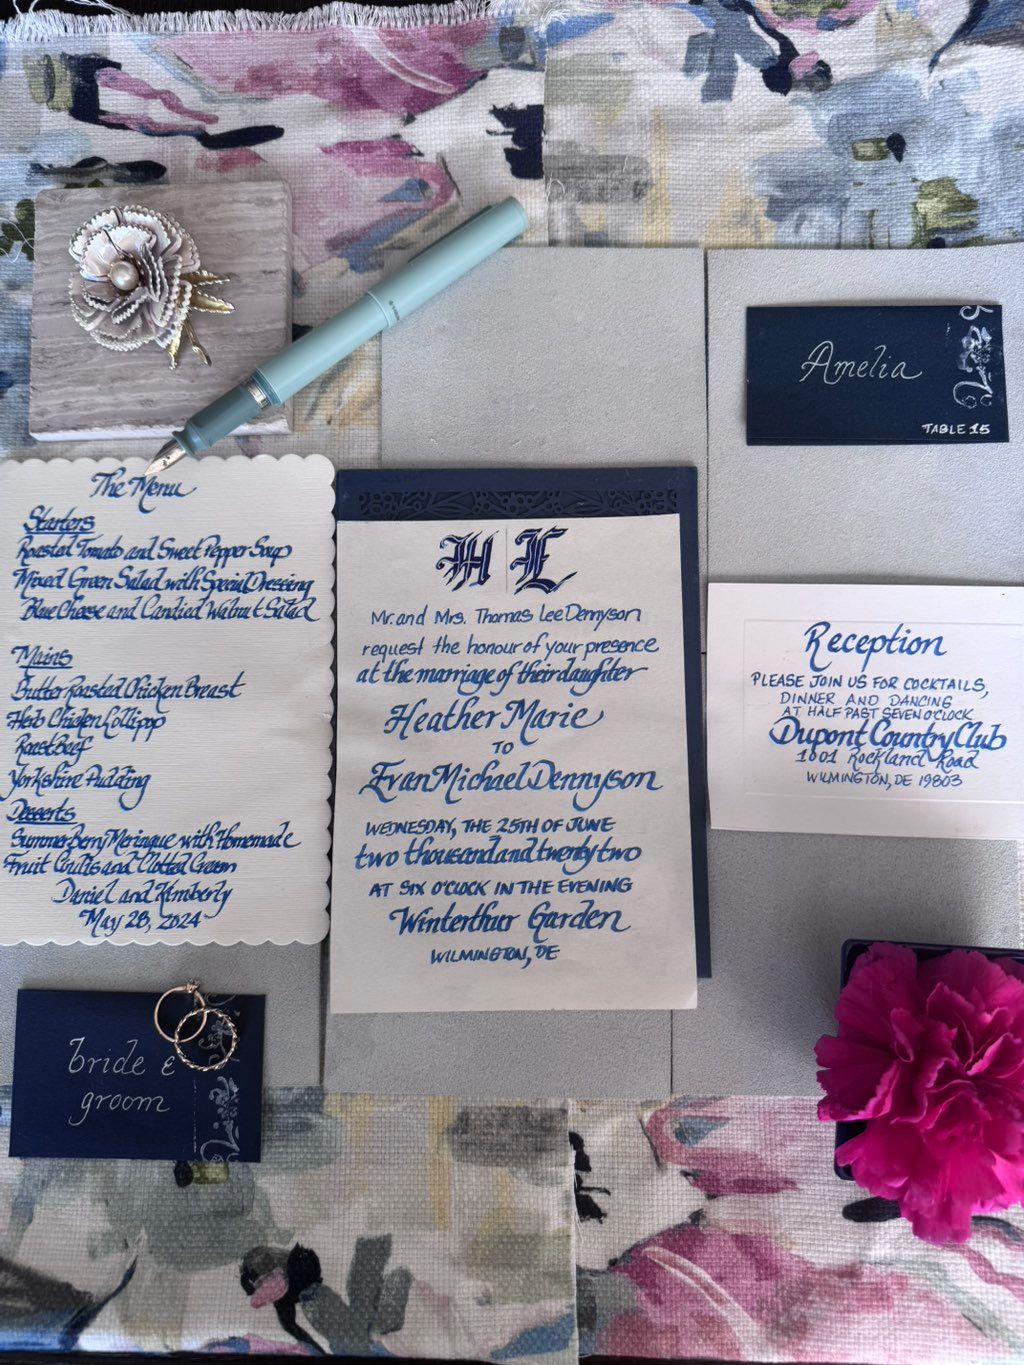 The Menu
Starters
Roasted Tomato and Sweet Pepper Soup
Mixed Green Salad with Special Dressing
Blue Cheese and Candied Walnut Salad
Mains
Butter Roasted Chicken Breast
Herb Chicken Lollipop
Roast Beef
Yorkshire Pudding
Desserts
Summer Berry Meringue with Homemade
Fruit Coulis and Clotted Cream
Daniel and Kimberly
May 28, 2024
bride &
groom
H E
Mr. and Mrs. Thomas Lee Dennyson
request the honour of your presence
at the marriage of their daughter
Heather Marie
TO
Evan Michael Dennyson
WEDNESDAY, THE 25TH OF JUNE
two thousand and twenty two
AT SIX O'CLOCK IN THE EVENING
Winterthur Garden
WILMINGTON, DE
Amelia
TABLE 15
Reception
PLEASE JOIN US FOR COCKTAILS,
DINNER AND DANCING
AT HALF PAST SEVEN O'CLOCK
Dupont Country Club
1001 Rockland Road
WILMINGTON, DE 19803